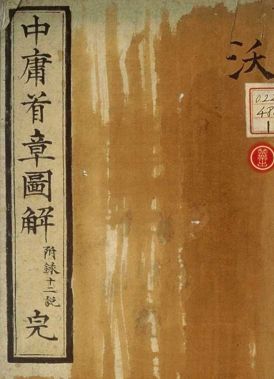 中庸首章圖解 附錄十二說 完
沃
022
48
1